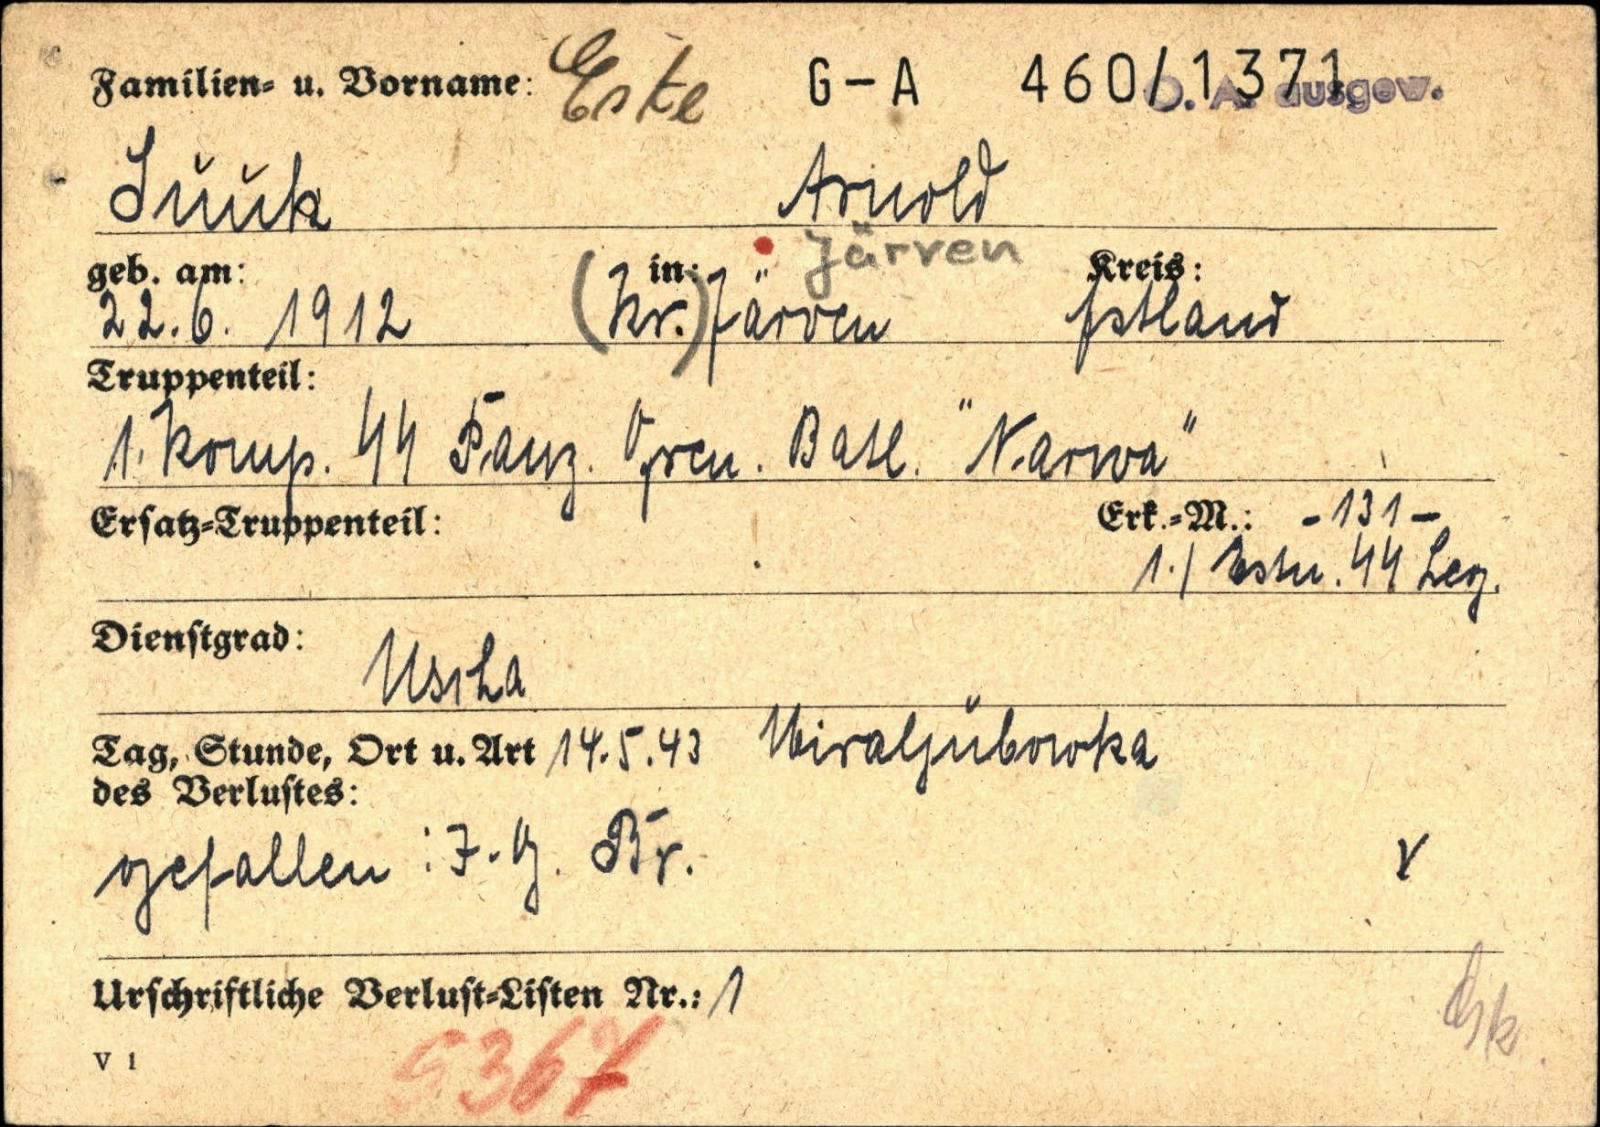 Familien- u. Vorname: Este G-A 460/1371 O. A. ausgew.
Suuk Arnold
geb. am: in: Järven Kreis:
22.6. 1912 (Kr.) Järven Estland
Truppenteil:
1. Komp. SS Panz. Gren. Batl. "Narwa"
Ersatz-Truppenteil: Erk.-M.: -131-
1./ Estn. SS Leg.
Dienstgrad:
Uscha
Tag, Stunde, Ort u. Art 14.5.43 Miraljubowka
des Verlustes:
gefallen : I.G. Br.
Urschriftliche Verlust-Listen Nr.: 1
V 1
5367